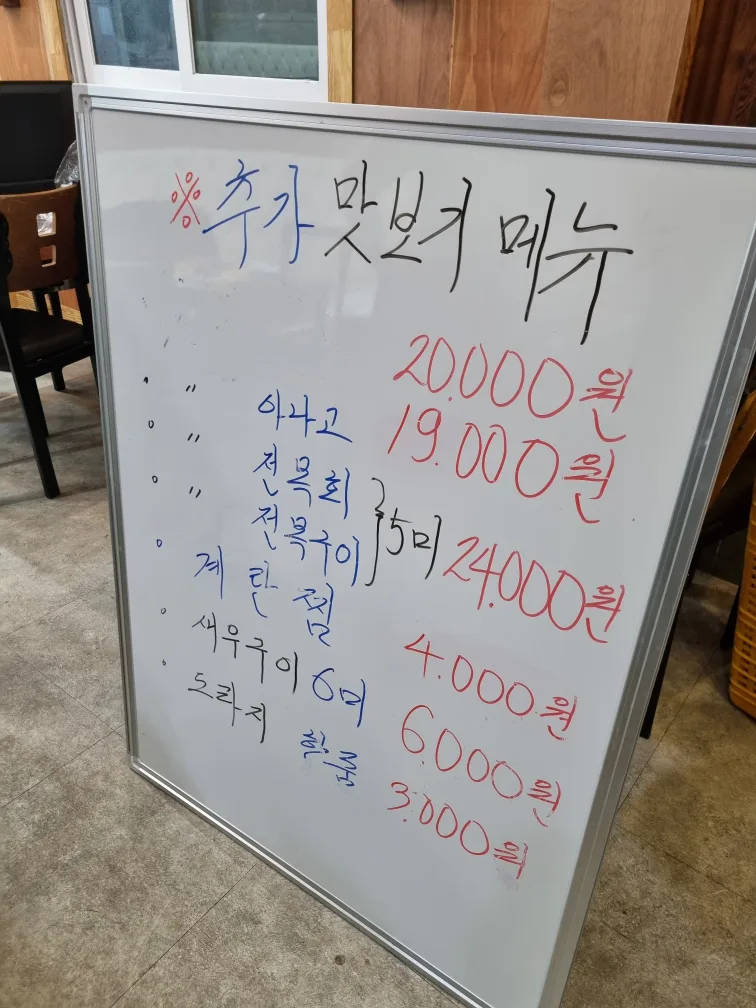 ※추가 맛보기 메뉴
20.000원
· 〃 아나고 19.000원
· 〃 전복회
· 〃 전복구이 } 5미 24.000원
· 계란찜 4.000원
· 새우구이 6미 6.000원
· 도라지 3.000원